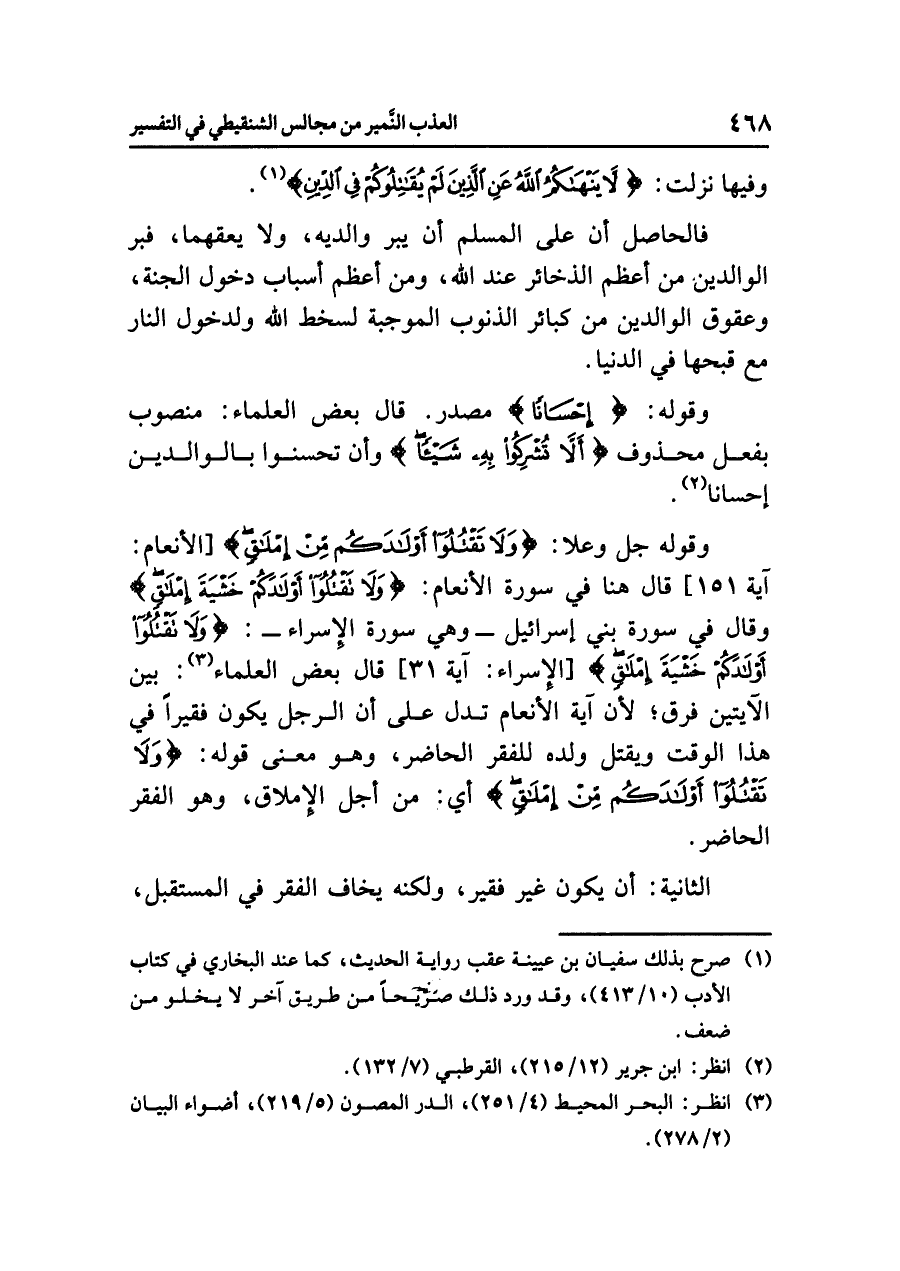 ٤٦٨ العذب النَّمير من مجالس الشنقيطي في التفسير
وفيها نزلت: ﴿ لَّا يَنْهَىٰكُمُ ٱللَّهُ عَنِ ٱلَّذِينَ لَمْ يُقَـٰتِلُوكُمْ فِي ٱلدِّينِ ﴾(١).
فالحاصل أن على المسلم أن يبر والديه، ولا يعقهما، فبر
الوالدين من أعظم الذخائر عند الله، ومن أعظم أسباب دخول الجنة،
وعقوق الوالدين من كبائر الذنوب الموجبة لسخط الله ولدخول النار
مع قبحها في الدنيا.
وقوله: ﴿ إِحْسَـٰنًا ﴾ مصدر. قال بعض العلماء: منصوب
بفعل محذوف ﴿ أَلَّا تُشْرِكُوا۟ بِهِۦ شَيْـًٔاۖ ﴾ وأن تحسنوا بالوالدين
إحسانا(٢).
وقوله جل وعلا: ﴿ وَلَا تَقْتُلُوٓا۟ أَوْلَـٰدَكُم مِّنْ إِمْلَـٰقٍۖ ﴾ [الأنعام:
آية ١٥١] قال هنا في سورة الأنعام: ﴿ وَلَا تَقْتُلُوٓا۟ أَوْلَـٰدَكُمْ خَشْيَةَ إِمْلَـٰقٍۖ ﴾
وقال في سورة بني إسرائيل ــ وهي سورة الإسراء ــ : ﴿ وَلَا تَقْتُلُوٓا۟
أَوْلَـٰدَكُمْ خَشْيَةَ إِمْلَـٰقٍۖ ﴾ [الإسراء: آية ٣١] قال بعض العلماء(٣): بين
الآيتين فرق؛ لأن آية الأنعام تدل على أن الرجل يكون فقيراً في
هذا الوقت ويقتل ولده للفقر الحاضر، وهو معنى قوله: ﴿ وَلَا
تَقْتُلُوٓا۟ أَوْلَـٰدَكُم مِّنْ إِمْلَـٰقٍۖ ﴾ أي: من أجل الإملاق، وهو الفقر
الحاضر.
الثانية: أن يكون غير فقير، ولكنه يخاف الفقر في المستقبل،
(١) صرح بذلك سفيان بن عيينة عقب رواية الحديث، كما عند البخاري في كتاب
الأدب (٤١٣/١٠)، وقد ورد ذلك صريحاً من طريق آخر لا يخلو من
ضعف.
(٢) انظر: ابن جرير (٢١٥/١٢)، القرطبي (١٣٢/٧).
(٣) انظر: البحر المحيط (٢٥١/٤)، الدر المصون (٢١٩/٥)، أضواء البيان
(٢٧٨/٢).